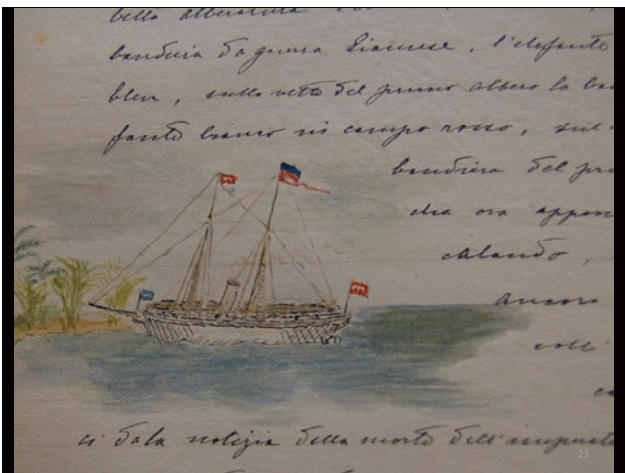 bella alberatura
bandiera da guerra Siamese, l'elefante
bleu, sulla vetta del primo albero la ban
fante bianco in campo rosso, sul
bandiera del pri
che ora appen
calando,
ancora
coll'
ci dà la notizia della morte dell'
23